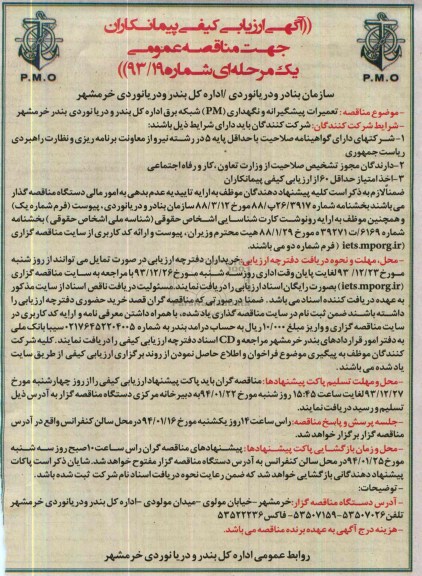 ((آگهی ارزیابی کیفی پیمانکاران
جهت مناقصه عمومی
یک مرحله‌ای شماره ۹۳/۱۹))
P.M.O
P.M.O
سازمان بنادر و دریانوردی /اداره کل بندر و دریانوردی خرمشهر
- موضوع مناقصه: تعمیرات پیشگیرانه و نگهداری (PM) شبکه برق اداره کل بندر و دریانوردی بندر خرمشهر
- شرایط شرکت کنندگان: شرکت کنندگان باید دارای شرایط ذیل باشند:
۱- شرکتهای دارای گواهینامه صلاحیت با حداقل پایه ۵ در رشته نیرو از معاونت برنامه ریزی و نظارت راهبردی
ریاست جمهوری
۲- دارندگان مجوز تشخیص صلاحیت از وزارت تعاون، کار و رفاه اجتماعی
۳- اخذ امتیاز حداقل ۶۰ از ارزیابی کیفی پیمانکاران
ضمناً لازم به ذکر است کلیه پیشنهاد دهندگان موظف به ارایه تاییدیه عدم بدهی به امور مالی دستگاه مناقصه گذار
می باشند بخشنامه شماره ۲۶۳۹۱۷/پ/۸۸ مورخ ۸۸/۳/۱۲ سازمان بنادر و دریانوردی، پیوست (فرم شماره یک)
و همچنین موظف به ارایه رونوشت کارت شناسایی اشخاص حقوقی (شناسه ملی اشخاص حقوقی) بخشنامه
شماره ۶۱۶۹/ت ۳۹۲۷۱ه مورخ ۸۸/۱/۲۹ هیت محترم وزیران، پیوست و ارائه کد کاربری از سایت مناقصه گزاری
(iets.mporg.ir) (فرم شماره دو) می باشند.
- محل، مهلت و نحوه دریافت دفترچه ارزیابی: خریداران دفترچه ارزیابی در صورت تمایل می توانند از روز شنبه
مورخ ۹۳/۱۲/۲۳ لغایت پایان وقت اداری روز سه شنبه مورخ ۹۳/۱۲/۲۶ با مراجعه به سایت مناقصه گزاری
(iets.mporg.ir) بصورت رایگان اسناد ارزیابی را دریافت نمایند. مسئولیت دریافت ناقص اسناد از سایت مذکور
به عهده دریافت کننده اسناد می باشد. ضمنا در صورتی که مناقصه گران قصد خرید حضوری دفترچه ارزیابی را
داشته باشند ضمن ثبت نام در سایت مناقصه گذاری یاد شده، با همراه داشتن معرفی نامه و ارایه کد کاربری در
سایت مناقصه گزاری و واریز مبلغ ۱۰/۰۰۰ ریال به حساب درآمد بندر به شماره ۰۲۱۷۶۴۵۲۲۰۴۰۰۵ سیبا بانک ملی
به دفتر امور قراردادهای بندر خرمشهر مراجعه و CD اسناد دفترچه ارزیابی کیفی را دریافت نمایند. کلیه شرکت
کنندگان موظف به پیگیری موضوع فراخوان و اطلاع حاصل نمودن از روند برگزاری ارزیابی کیفی از طریق سایت
یاد شده می باشند.
- محل و مهلت تسلیم پاکت پیشنهادها: مناقصه گران باید پاکت پیشنهاد ارزیابی کیفی را از روز چهارشنبه مورخ
۹۳/۱۲/۲۷ لغایت ساعت ۱۵:۴۵ روز شنبه مورخ ۹۴/۰۱/۲۲ به دبیرخانه مرکزی دستگاه مناقصه گزار به آدرس ذیل
تسلیم و رسید دریافت نمایند.
- جلسه پرسش و پاسخ مناقصه: راس ساعت ۱۴ روز یکشنبه مورخ ۹۴/۰۱/۱۶ در محل سالن کنفرانس واقع در آدرس
مناقصه گزار برگزار خواهد شد.
- محل و زمان بازگشایی پاکت پیشنهادها: پیشنهادهای مناقصه گران راس ساعت ۱۰ صبح روز سه شنبه
مورخ ۹۴/۰۱/۲۵ در محل سالن کنفرانس به آدرس دستگاه مناقصه گزار مفتوح خواهد شد. شایان ذکر است پاکات
پیشنهاد دهندگانی بازگشایی خواهد شد که ضمن رعایت نحوه دریافت اسناد نام شرکت ثبت شده باشد.
- توضیحات:
- آدرس دستگاه مناقصه گزار: خرمشهر -خیابان مولوی -میدان مولوی -اداره کل بندر و دریانوردی خرمشهر
تلفن ۵۳۵۰۷۰۲۶-۵۳۵۰۷۱۵۹ -فاکس ۵۳۵۲۲۲۳۶
- هزینه درج آگهی به عهده برنده مناقصه می باشد.
روابط عمومی اداره کل بندر و دریانوردی خرمشهر